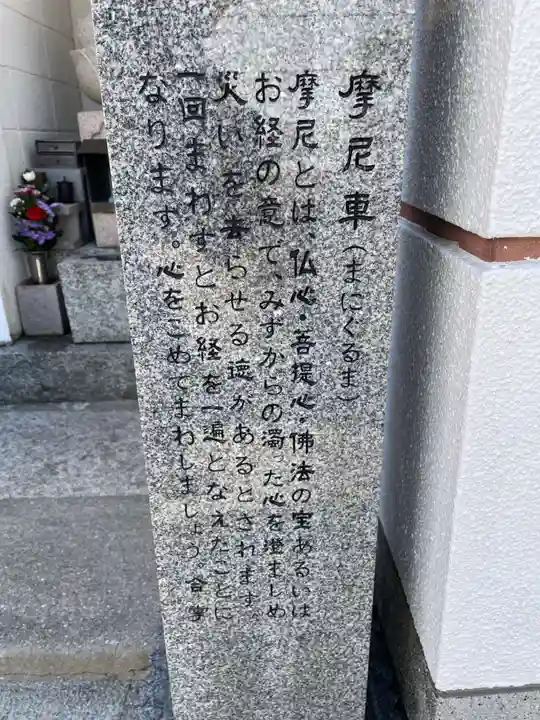 摩尼車(まにぐるま)
摩尼とは、仏心・菩提心・佛法の宝あるいは
お経の意で、みずからの濁った心を澄ましめ
災いを去らせる徳があるとされます。
一回まわすとお経を一遍となえたことに
なります。心をこめてまわしましょう 合掌